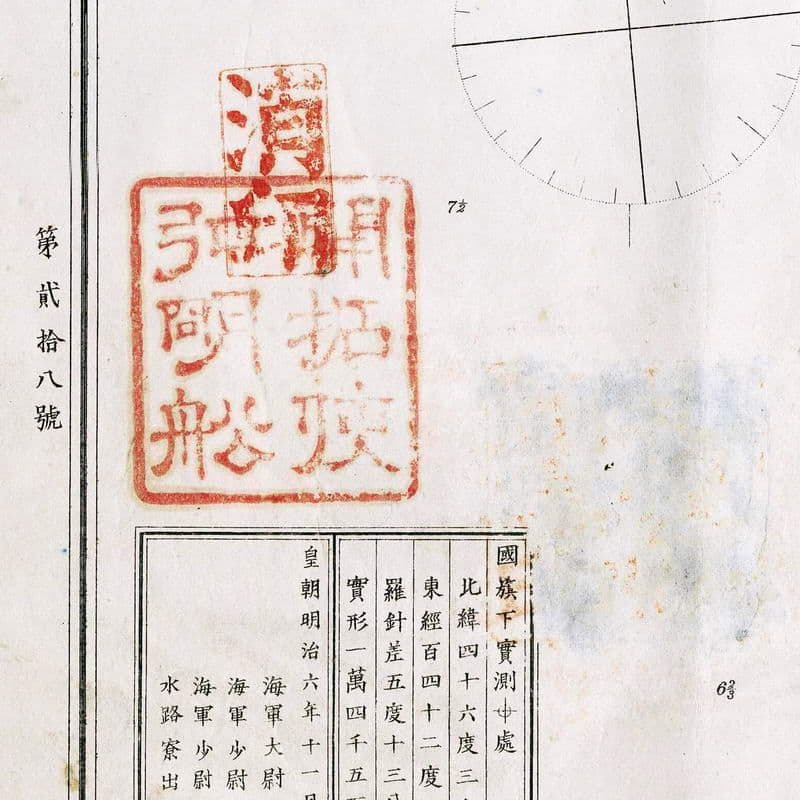 消印
開拓使
弘明船
7½
6⅔
國旗下實測中處
北緯四十六度三
東經百四十二度
羅針差五度十三
實形一萬四千五
皇朝明治六年十一
海軍大尉
海軍少尉
海軍少尉
水路寮出
第貳拾八號